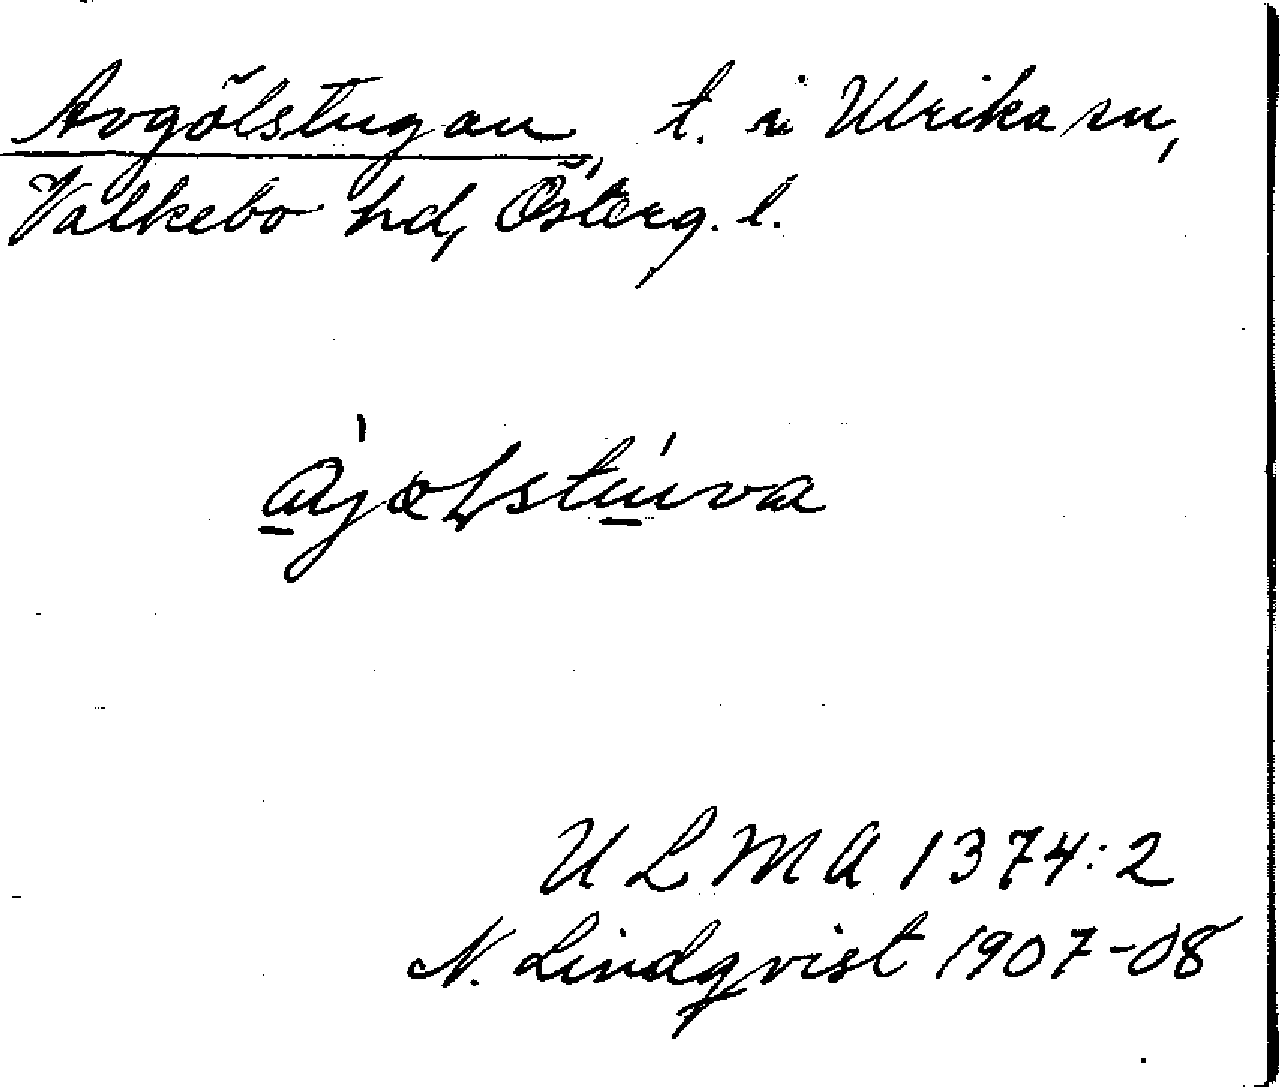 Avgölstugan, t. i Ulrika sn,
Valkebo hd, Österg. l.
U L M A 1374:2
N. Lindqvist 1907-08